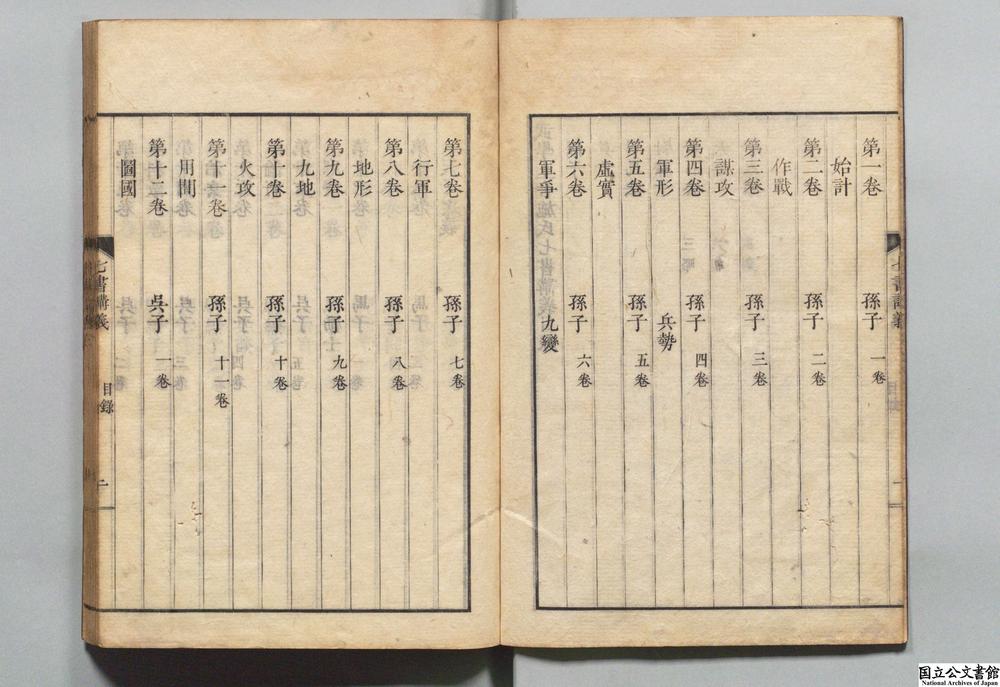 第一卷 孫子 一卷
始計
第二卷 孫子 二卷
作戰
第三卷 孫子 三卷
謀攻
第四卷 孫子 四卷
軍形 兵勢
第五卷 孫子 五卷
虛實
第六卷 孫子 六卷
軍爭 九變
第七卷 孫子 七卷
行軍
第八卷 孫子 八卷
地形
第九卷 孫子 九卷
九地
第十卷 孫子 十卷
火攻
第十一卷 孫子 十一卷
用間
第十二卷 吳子 一卷
圖國
七書講義 目錄 二
国立公文書館
National Archives of Japan